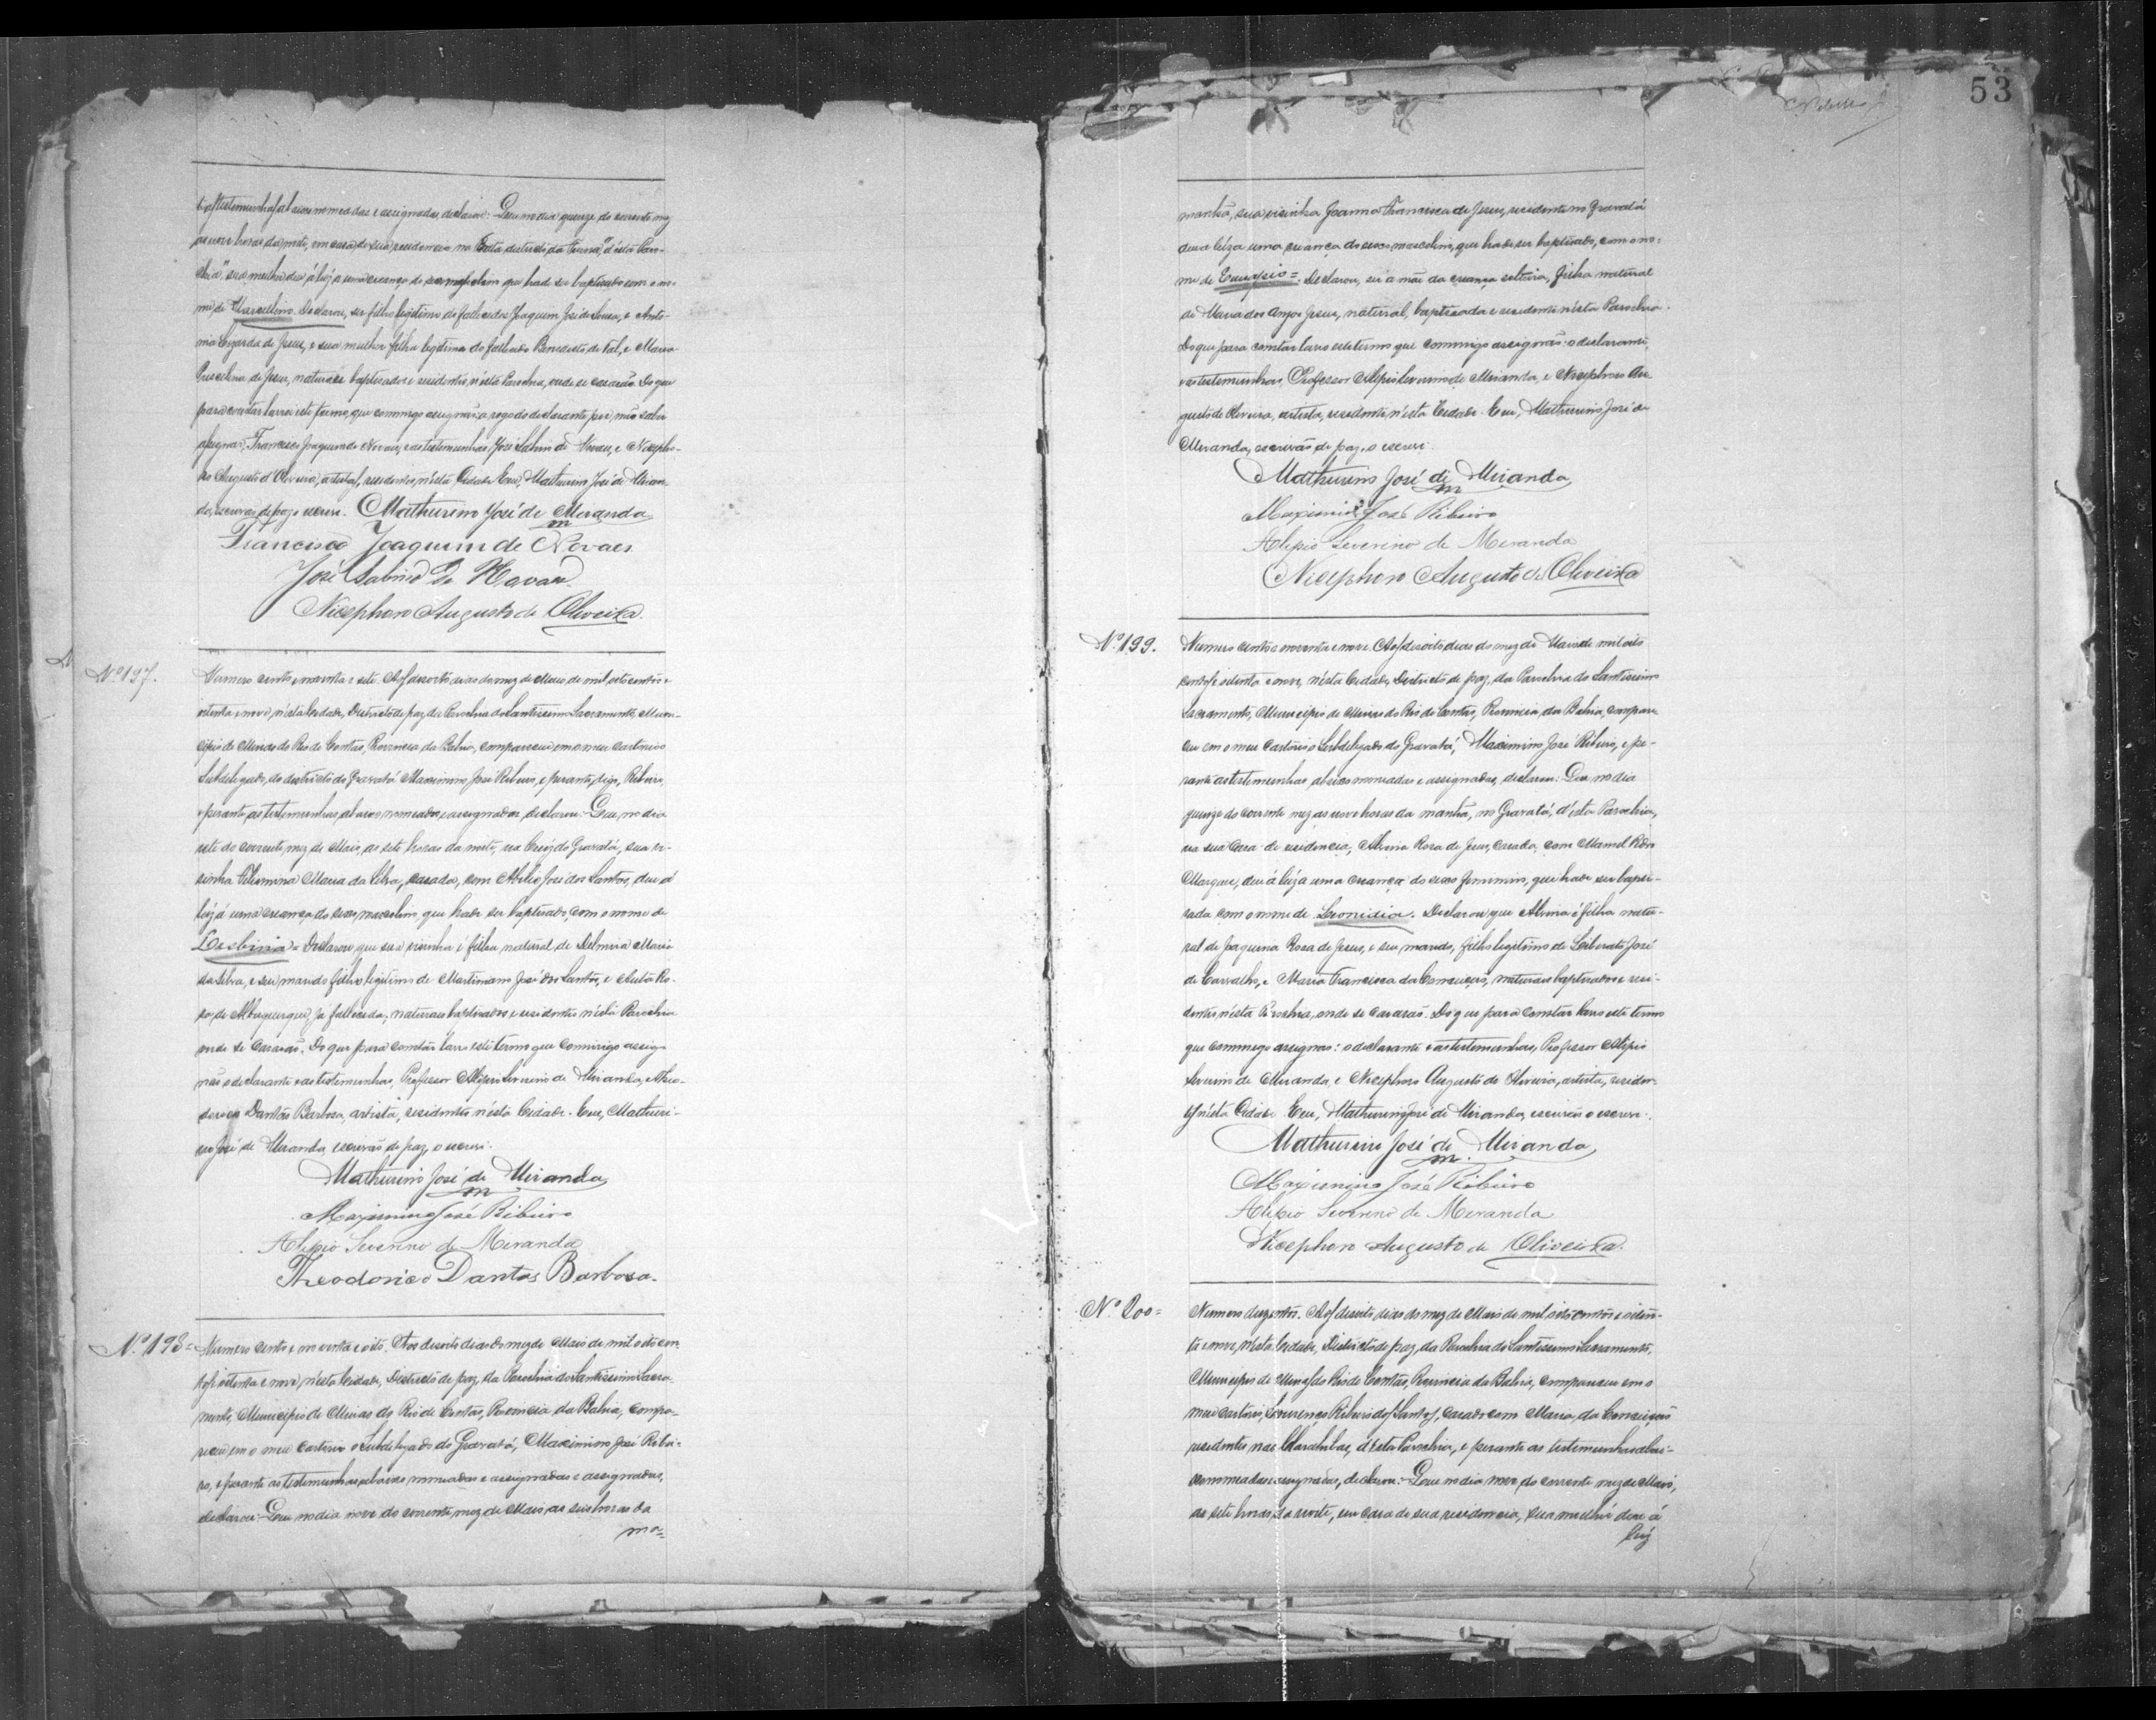 testemunhas abaixo nomeadas e assignadas, declarou: Que no dia quinze do corrente mez
as nove horas da noite, em casa de sua residencia na districto da d'esta Paro-
chia, sua mulher deu á luz a uma creança do sexo masculino que hade ser baptisado com o no-
me de Marcellino. Declarou, ser filho legitimo do fallecido Joaquim José de Sousa, e Anto-
nia de Jesus, e sua mulher filha legitima do fallecido Benedicto de tal, e Maria
de Jesus, naturaes baptisados e residentes n'esta Parochia, onde se casarão. Do que
para constar lavrei este termo, que commigo assignão a rogo do declarante por não saber
assignar, Francisco Joaquim de Novaes, e as testemunhas José Sabino de Novaes, e Nicepho-
ro Augusto d'Oliveira, artistas, residentes n'esta Cidade. Eu, Mathurino José de Miran-
da, escrivão de paz o escrevi. Mathurino José de Miranda
Francisco Joaquim de Novaes
José Sabino de Novaes
Nicephoro Augusto de Oliveira.
Nº 197.
Numero cento e noventa e sete. Aos desoito dias do mez de Maio de mil oito centos e
oitenta e nove, n'esta Cidade, Districto de paz da Parochia do Santissimo Sacramento, Muni-
cipio de Minas do Rio de Contas, Provincia da Bahia, compareceu em o meu cartorio o
Subdelegado do districto do Gravatá Maximino José Ribeiro, e perante, digo, Ribeiro,
e perante as testemunhas abaixo nomeadas e assignadas declarou: Que, no dia
sete do corrente mez de Maio, as sete horas da noite, na do Gravatá, sua vi-
sinha Maria da Silva, casada, com Abilio José dos Santos, deu á
luz á uma creança do sexo masculino, que hade ser baptisado, com o nome de
Lesbino = Declarou, que sua visinha é filha natural de Maria
da Silva, e seu marido filho legitimo de Martiniano José dos Santos, e Ro-
sa de Albuquerque, já fallecida, naturaes baptisados e residentes n'esta Parochia
onde se casarão. Do que para constar lavro este termo que commigo assig-
não o declarante e as testemunhas, Professor Alipio Severino de Miranda, e Theo-
dorico Dantas Barbosa, artista, residentes n'esta Cidade. Eu, Mathuri-
no José de Miranda escrivão de paz, o escrevi.
Mathurino José de Miranda
Maximino José Ribeiro
Alipio Severino de Miranda
Theodorico Dantas Barbosa.
Nº 198 =
Numero cento e noventa e oito. Aos desoito dias do mez de Maio de mil oito cen-
tos e oitenta e nove, n'esta Cidade, Districto de paz, da Parochia do Santissimo Sacra-
mento, Municipio de Minas do Rio de Contas, Provincia da Bahia, compa-
receu em o meu cartorio o Subdelegado do Gravatá, Maximino José Ribei-
ro, e perante as testemunhas abaixo nomeadas e assignadas e assignadas,
declarou: Que no dia nove do corrente mez de Maio as seis horas da
ma=
53
manhã, sua visinha Joanna Francisca de Jesus, residente no Gravatá
deu a luz a uma creança do sexo masculino, que hade ser baptisado, com o no-
me de = Declarou, ser a mãe da creança solteira, filha natural
de Maria dos Anjos Jesus, natural, baptisada e residente n'esta Parochia.
Do que para constar lavro este termo que commigo assignão: o declarante,
e as testemunhas, Professor Alipio Severino de Miranda, e Nicephoro Au-
gusto de Oliveira, artista, residentes n'esta Cidade. Eu, Mathurino José de
Miranda, escrivão de paz, o escrevi.
Mathurino José de Miranda
Maximino José Ribeiro
Alipio Severino de Miranda
Nicephoro Augusto de Oliveira
Nº 199.
Numero cento e noventa e nove. Aos desoito dias do mez de Maio de mil oito
centos e oitenta e nove, n'esta Cidade, Districto de paz, da Parochia do Santissimo
Sacramento, Municipio de Minas do Rio de Contas, Provincia da Bahia, compare-
ceu em o meu Cartorio o Subdelegado do Gravatá, Maximino José Ribeiro, e pe-
rante as testemunhas abaixo nomeadas e assignadas, declarou: Que no dia
quinze do corrente mez as nove horas da manhã, no Gravatá, d'esta Parochia,
na sua Casa de residencia, Rosa de Jesus, casada, com Manoel
Marques, deu á luz a uma creança do sexo feminino, que hade ser bapti-
sada com o nome de Leonidia. Declarou que é filha natu-
ral de Joaquina Rosa de Jesus, e seu marido, filho legitimo de Liberato José
de Carvalho, e Maria Francisca da Conceição, naturaes baptisados e resi-
dentes n'esta Parochia, onde se casarão. Do que para constar lavro este termo
que commigo assignão: o declarante e as testemunhas, Professor Alipio
Severino de Miranda, e Nicephoro Augusto de Oliveira, artista, residen-
tes n'esta Cidade. Eu, Mathurino José de Miranda, escrivão o escrevi.
Mathurino José de Miranda,
Maximino José Ribeiro
Alipio Severino de Miranda
Nicephoro Augusto de Oliveira.
Nº 200 =
Numero duzentos. Aos desoito dias do mez de Maio de mil oito centos e oiten-
ta e nove, n'esta Cidade, Districto de paz, da Parochia do Santissimo Sacramento,
Municipio de Minas do Rio de Contas, Provincia da Bahia, compareceu em o
meu cartorio, Lourenço Ribeiro dos Santos, casado com Maria da Conceição
residentes nas d'esta Parochia, e perante as testemunhas abai-
xo nomeadas e assignadas, declarou: Que no dia nove do corrente mez de Maio,
as sete horas da noite, em casa de sua residencia, sua mulher deu á
luz